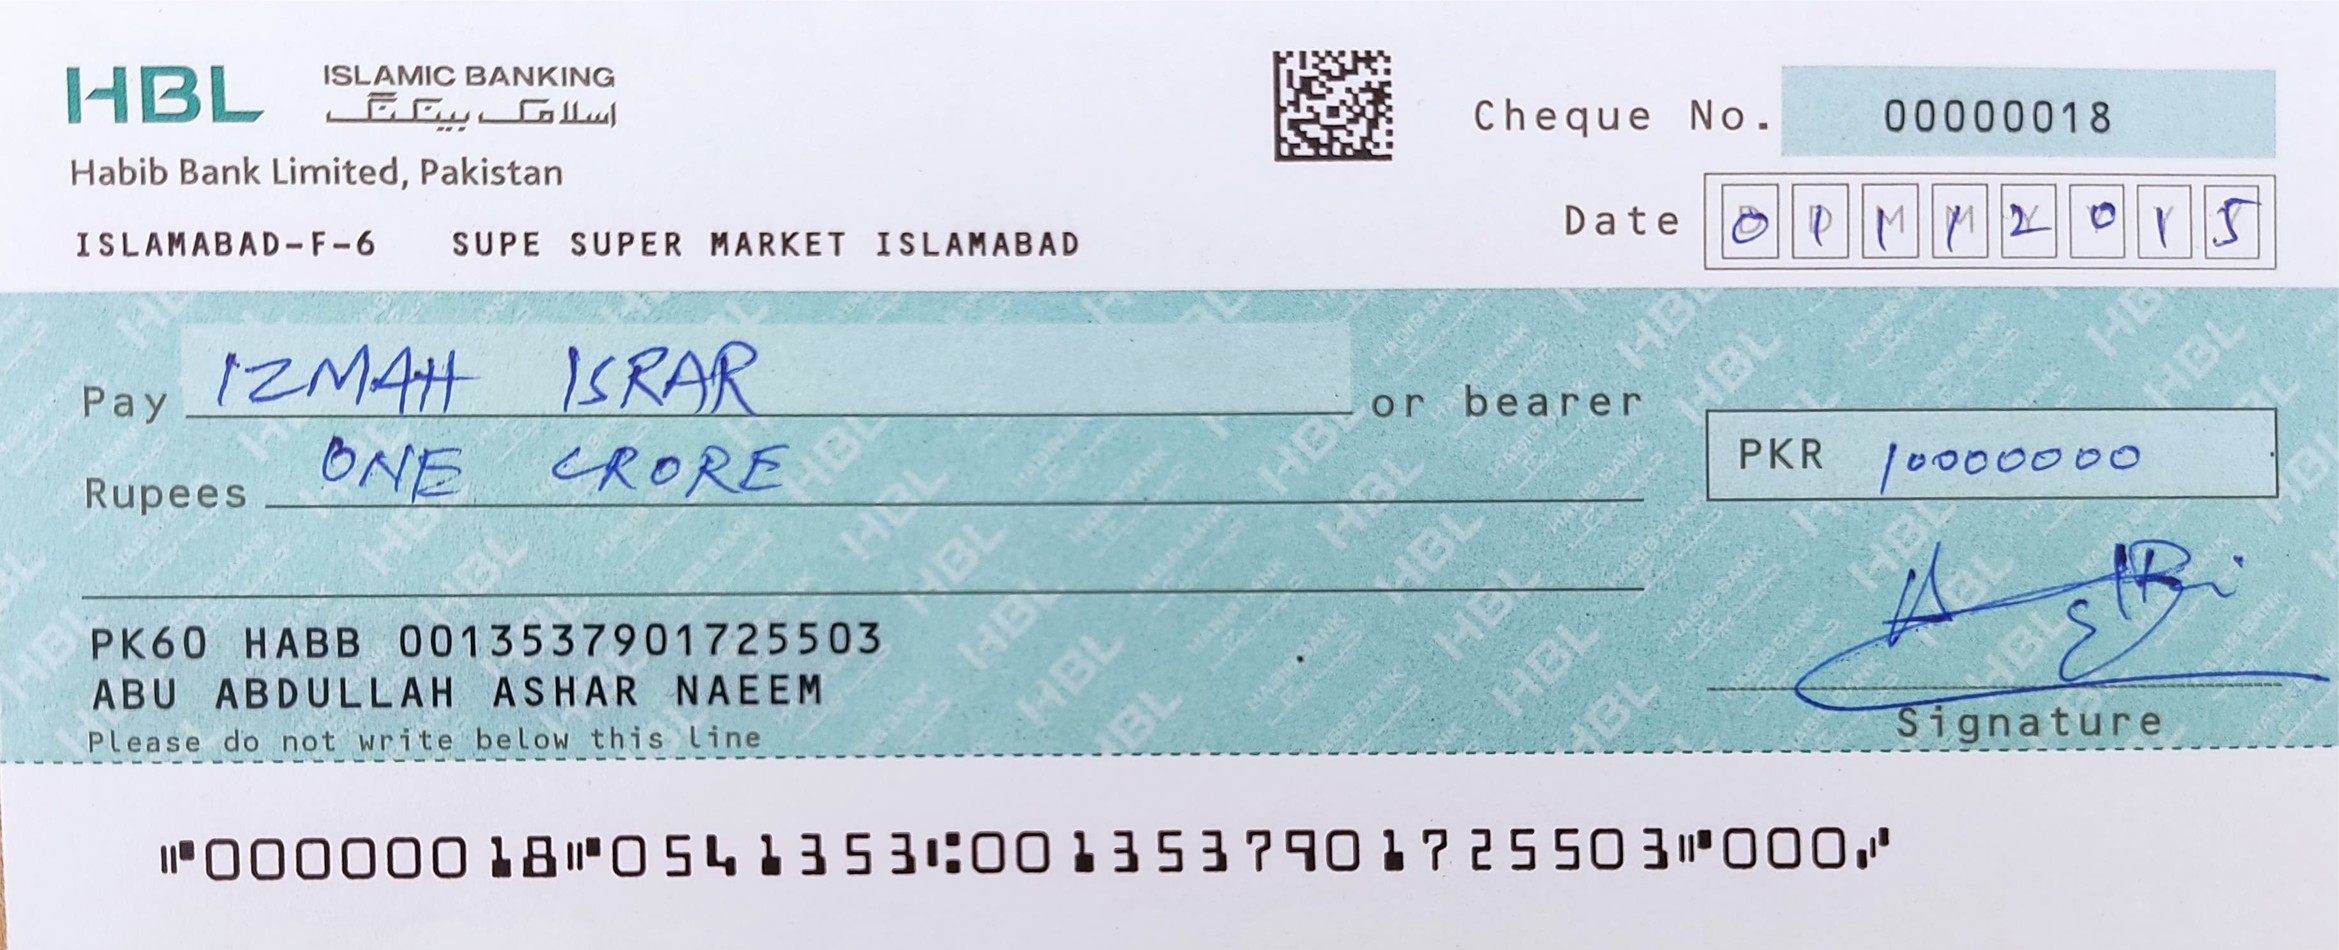 HBL ISLAMIC BANKING
اسلامک بینکنگ
Habib Bank Limited, Pakistan
ISLAMABAD-F-6 SUPE SUPER MARKET ISLAMABAD
Cheque No. 00000018
Date 01112015
Pay IZMAH ISRAR or bearer
Rupees ONE CRORE
PKR 10000000
PK60 HABB 0013537901725503
ABU ABDULLAH ASHAR NAEEM
Please do not write below this line
Signature
⑈00000018⑈0541353⑆0013537901725503⑈000⑇